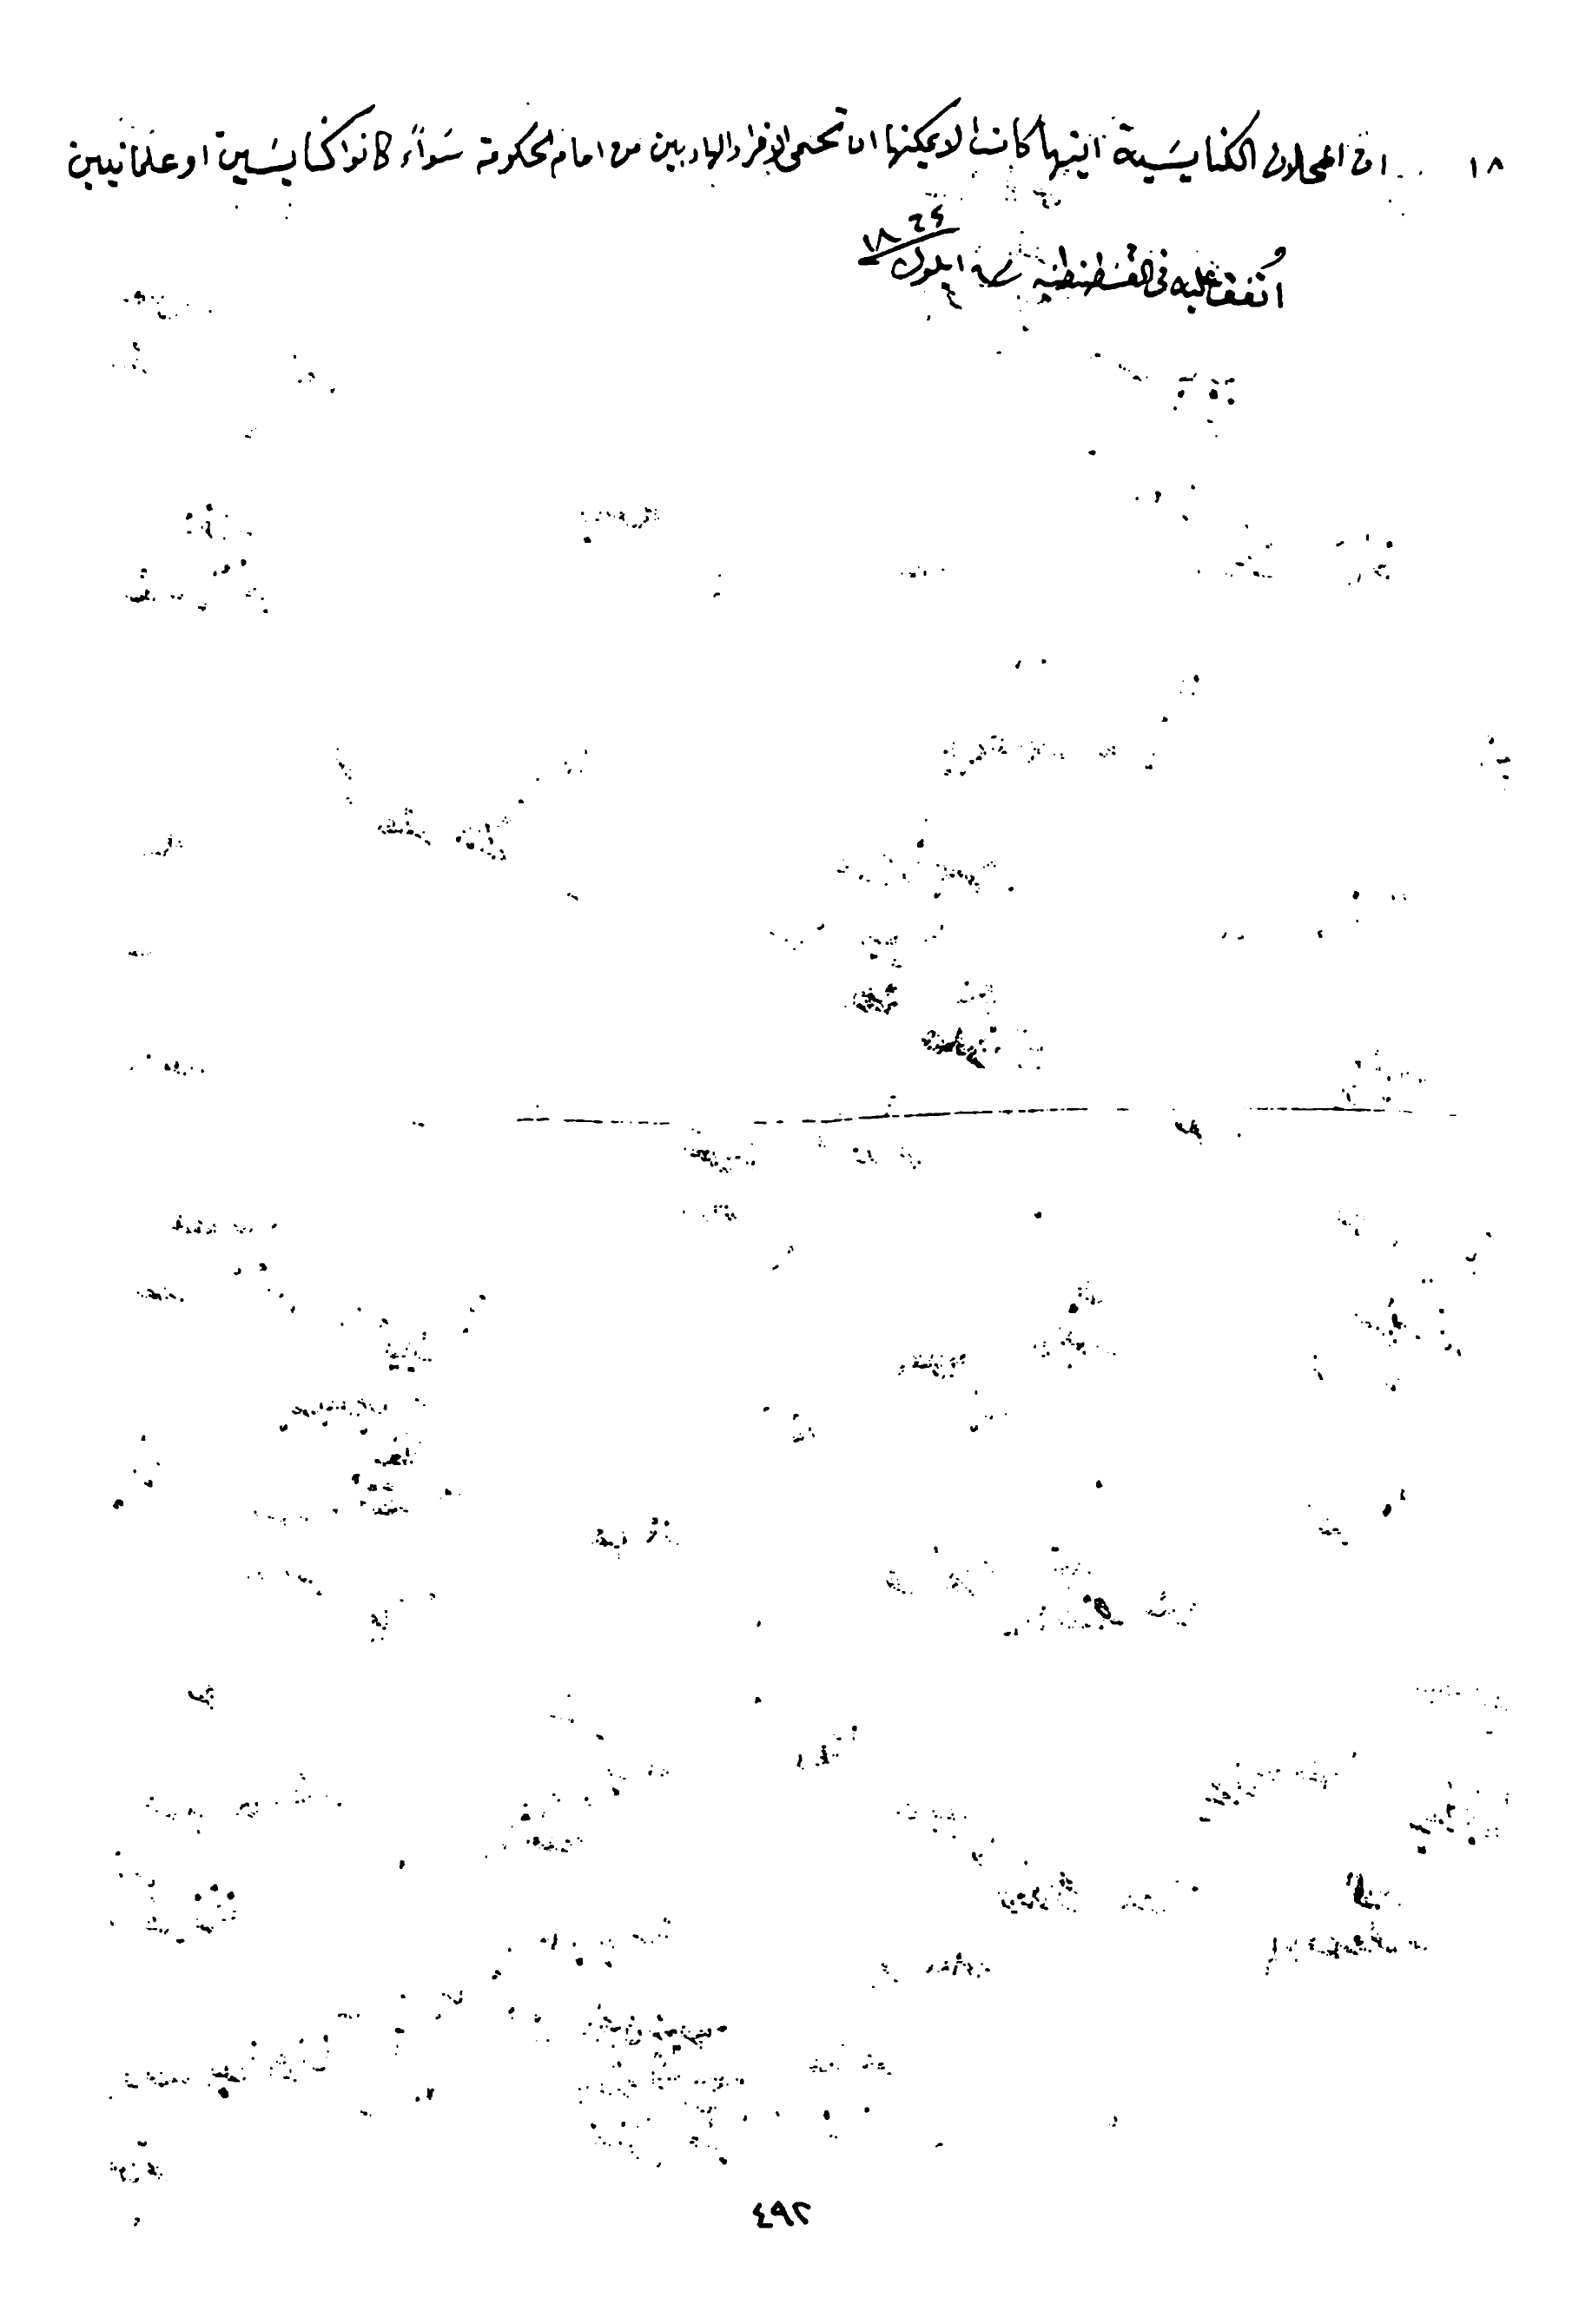 ١٨ ان المحلات الكنايسَية ايتها كانت لا يمكنها ان تحمي الافراد الهاربين من امام الحكومة سَوآءً كانوا كنايسَيين او علمانيين
اتُفق عليه في القسَطنطنيه ايلول ١٨٦٤
٤٩٢